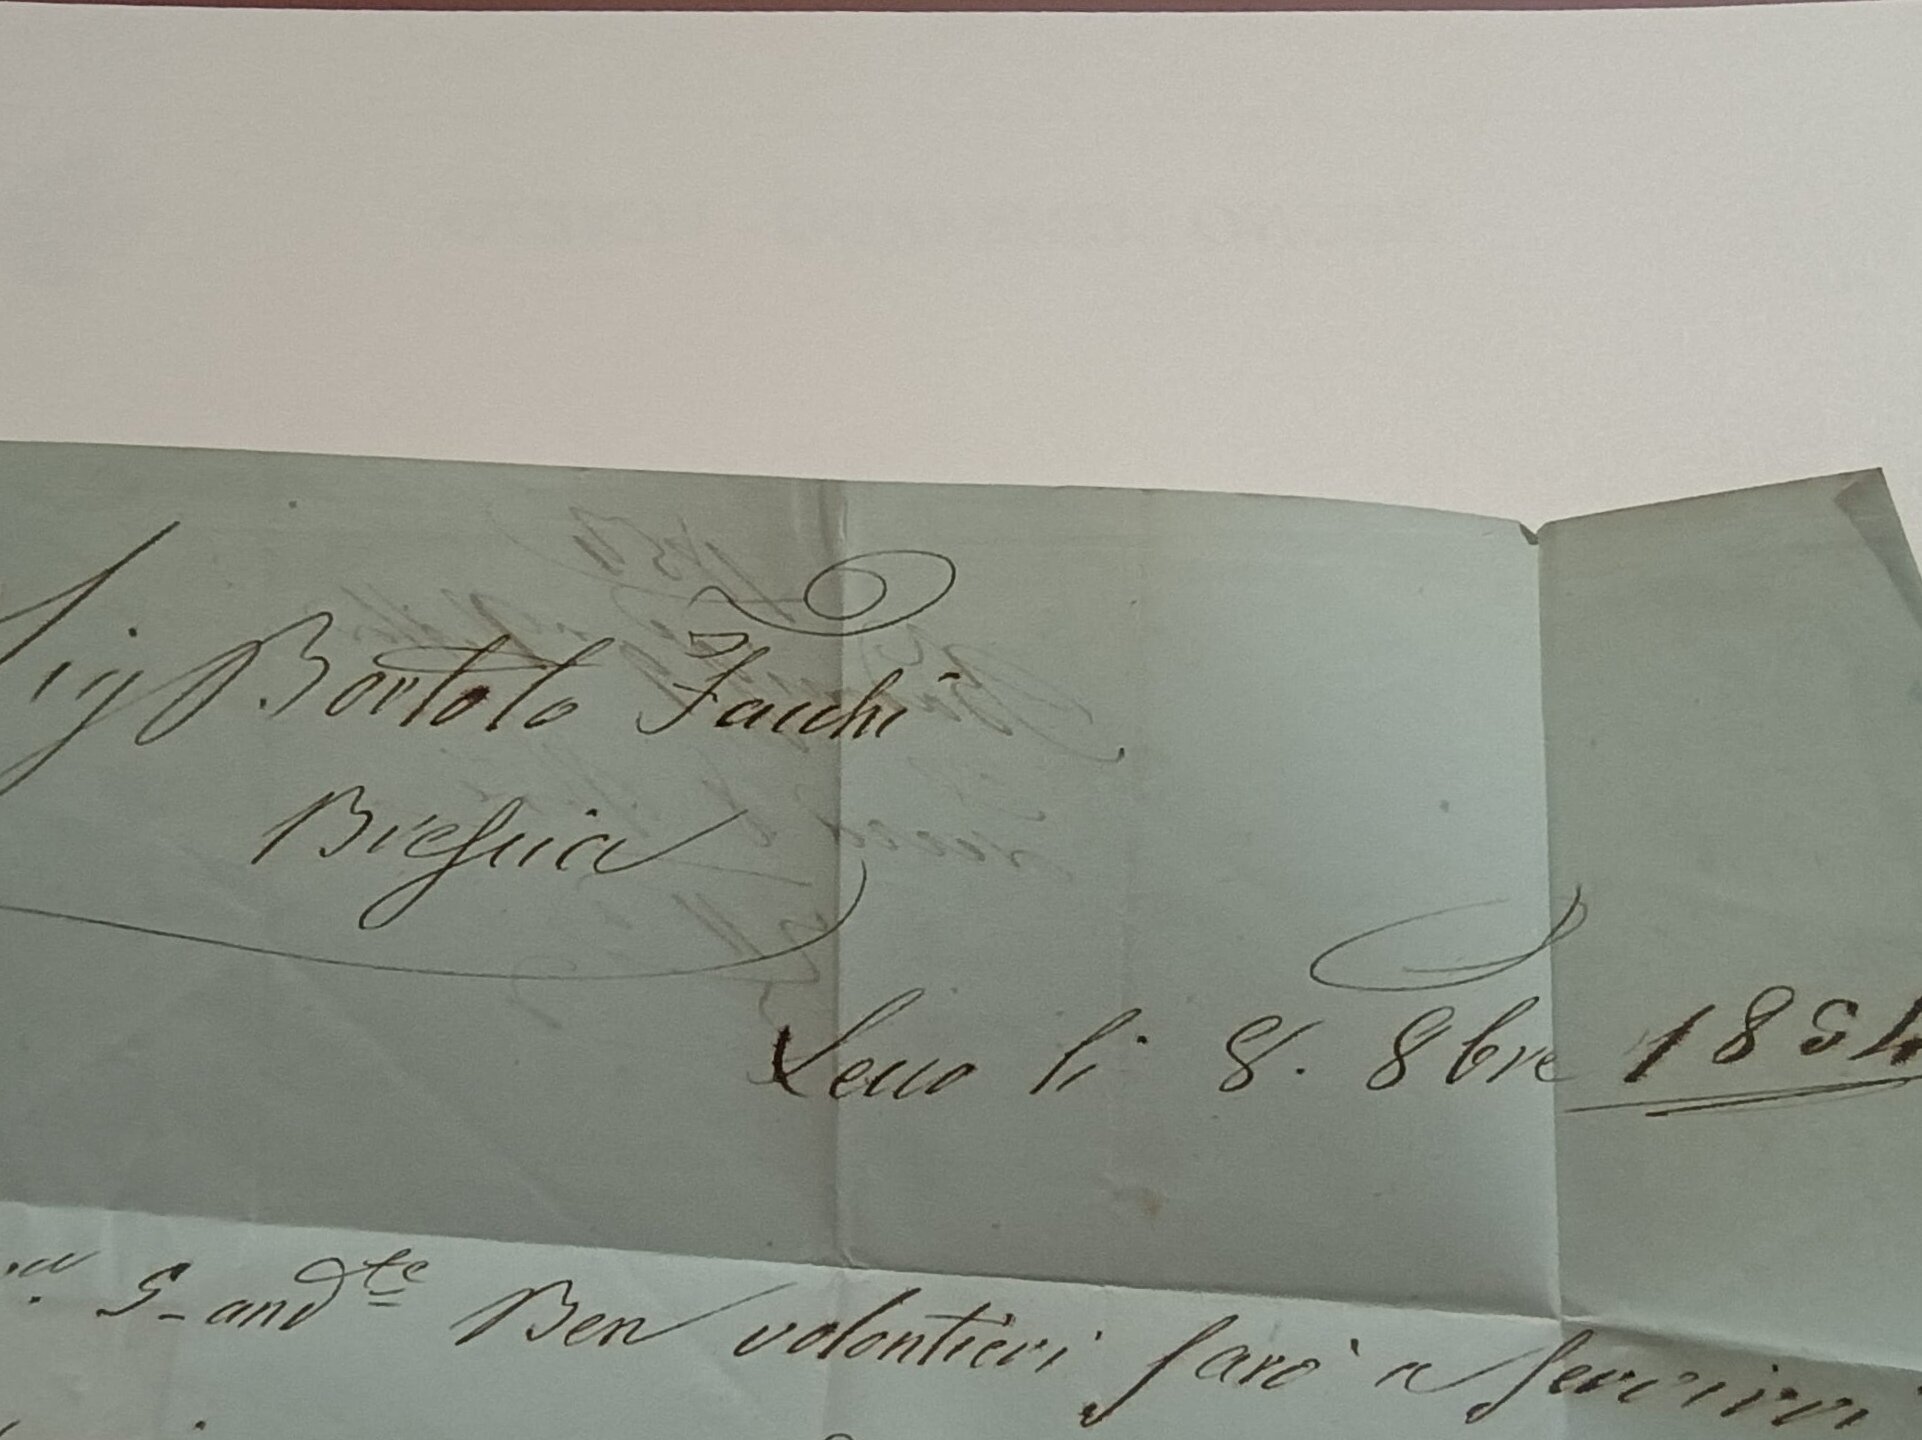 Sig Bortolo Facchi
Brescia
Lecco li 8. 8bre 1854
5 andte Ben volontieri farò a servirvi